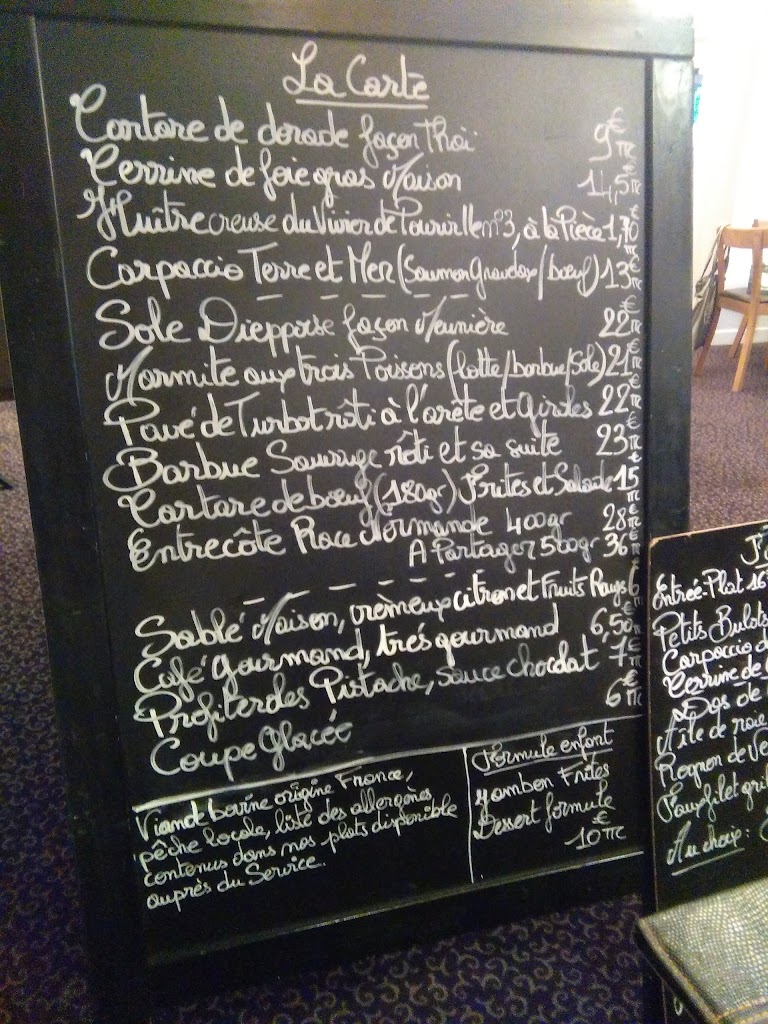 La Carte
Tartare de dorade façon Thaï 9€ TTC
Terrine de foie gras Maison 14,5€ TTC
Huître creuse du Vivier de Pourville n°3, à la Pièce 1,70€ TTC
Carpaccio Terre et Mer (Saumon Gravelax / bœuf) 13€ TTC
Sole Dieppoise façon Meunière 22€ TTC
Marmite aux trois Poissons (lotte/barbue/Sole) 21€ TTC
Pavé de Turbot rôti à l'arête et Girolles 22€ TTC
Barbue Sauvage rôti et sa suite 23€ TTC
Tartare de bœuf (180gr) Frites et Salade 15€ TTC
Entrecôte Race Normande 400gr 28€ TTC
A Partager 500gr 36€ TTC
Sablé Maison, crèmeux citron et Fruits Rouges 6€ TTC
Café gourmand, très gourmand 6,50€ TTC
Profiteroles Pistache, sauce chocolat 7€ TTC
Coupe Glacée 6€ TTC
Viande bovine origine France,
pêche locale, liste des allergènes
contenus dans nos plats disponible
auprès du Service.
Formule enfant
Jambon Frites
Dessert formule
10€ TTC
Entrée-Plat 16
Petits Bulots
Carpaccio d
Terrine de
Dos de
Aile de raie
Rognon de Ve
Faux filet gril
Au choix :